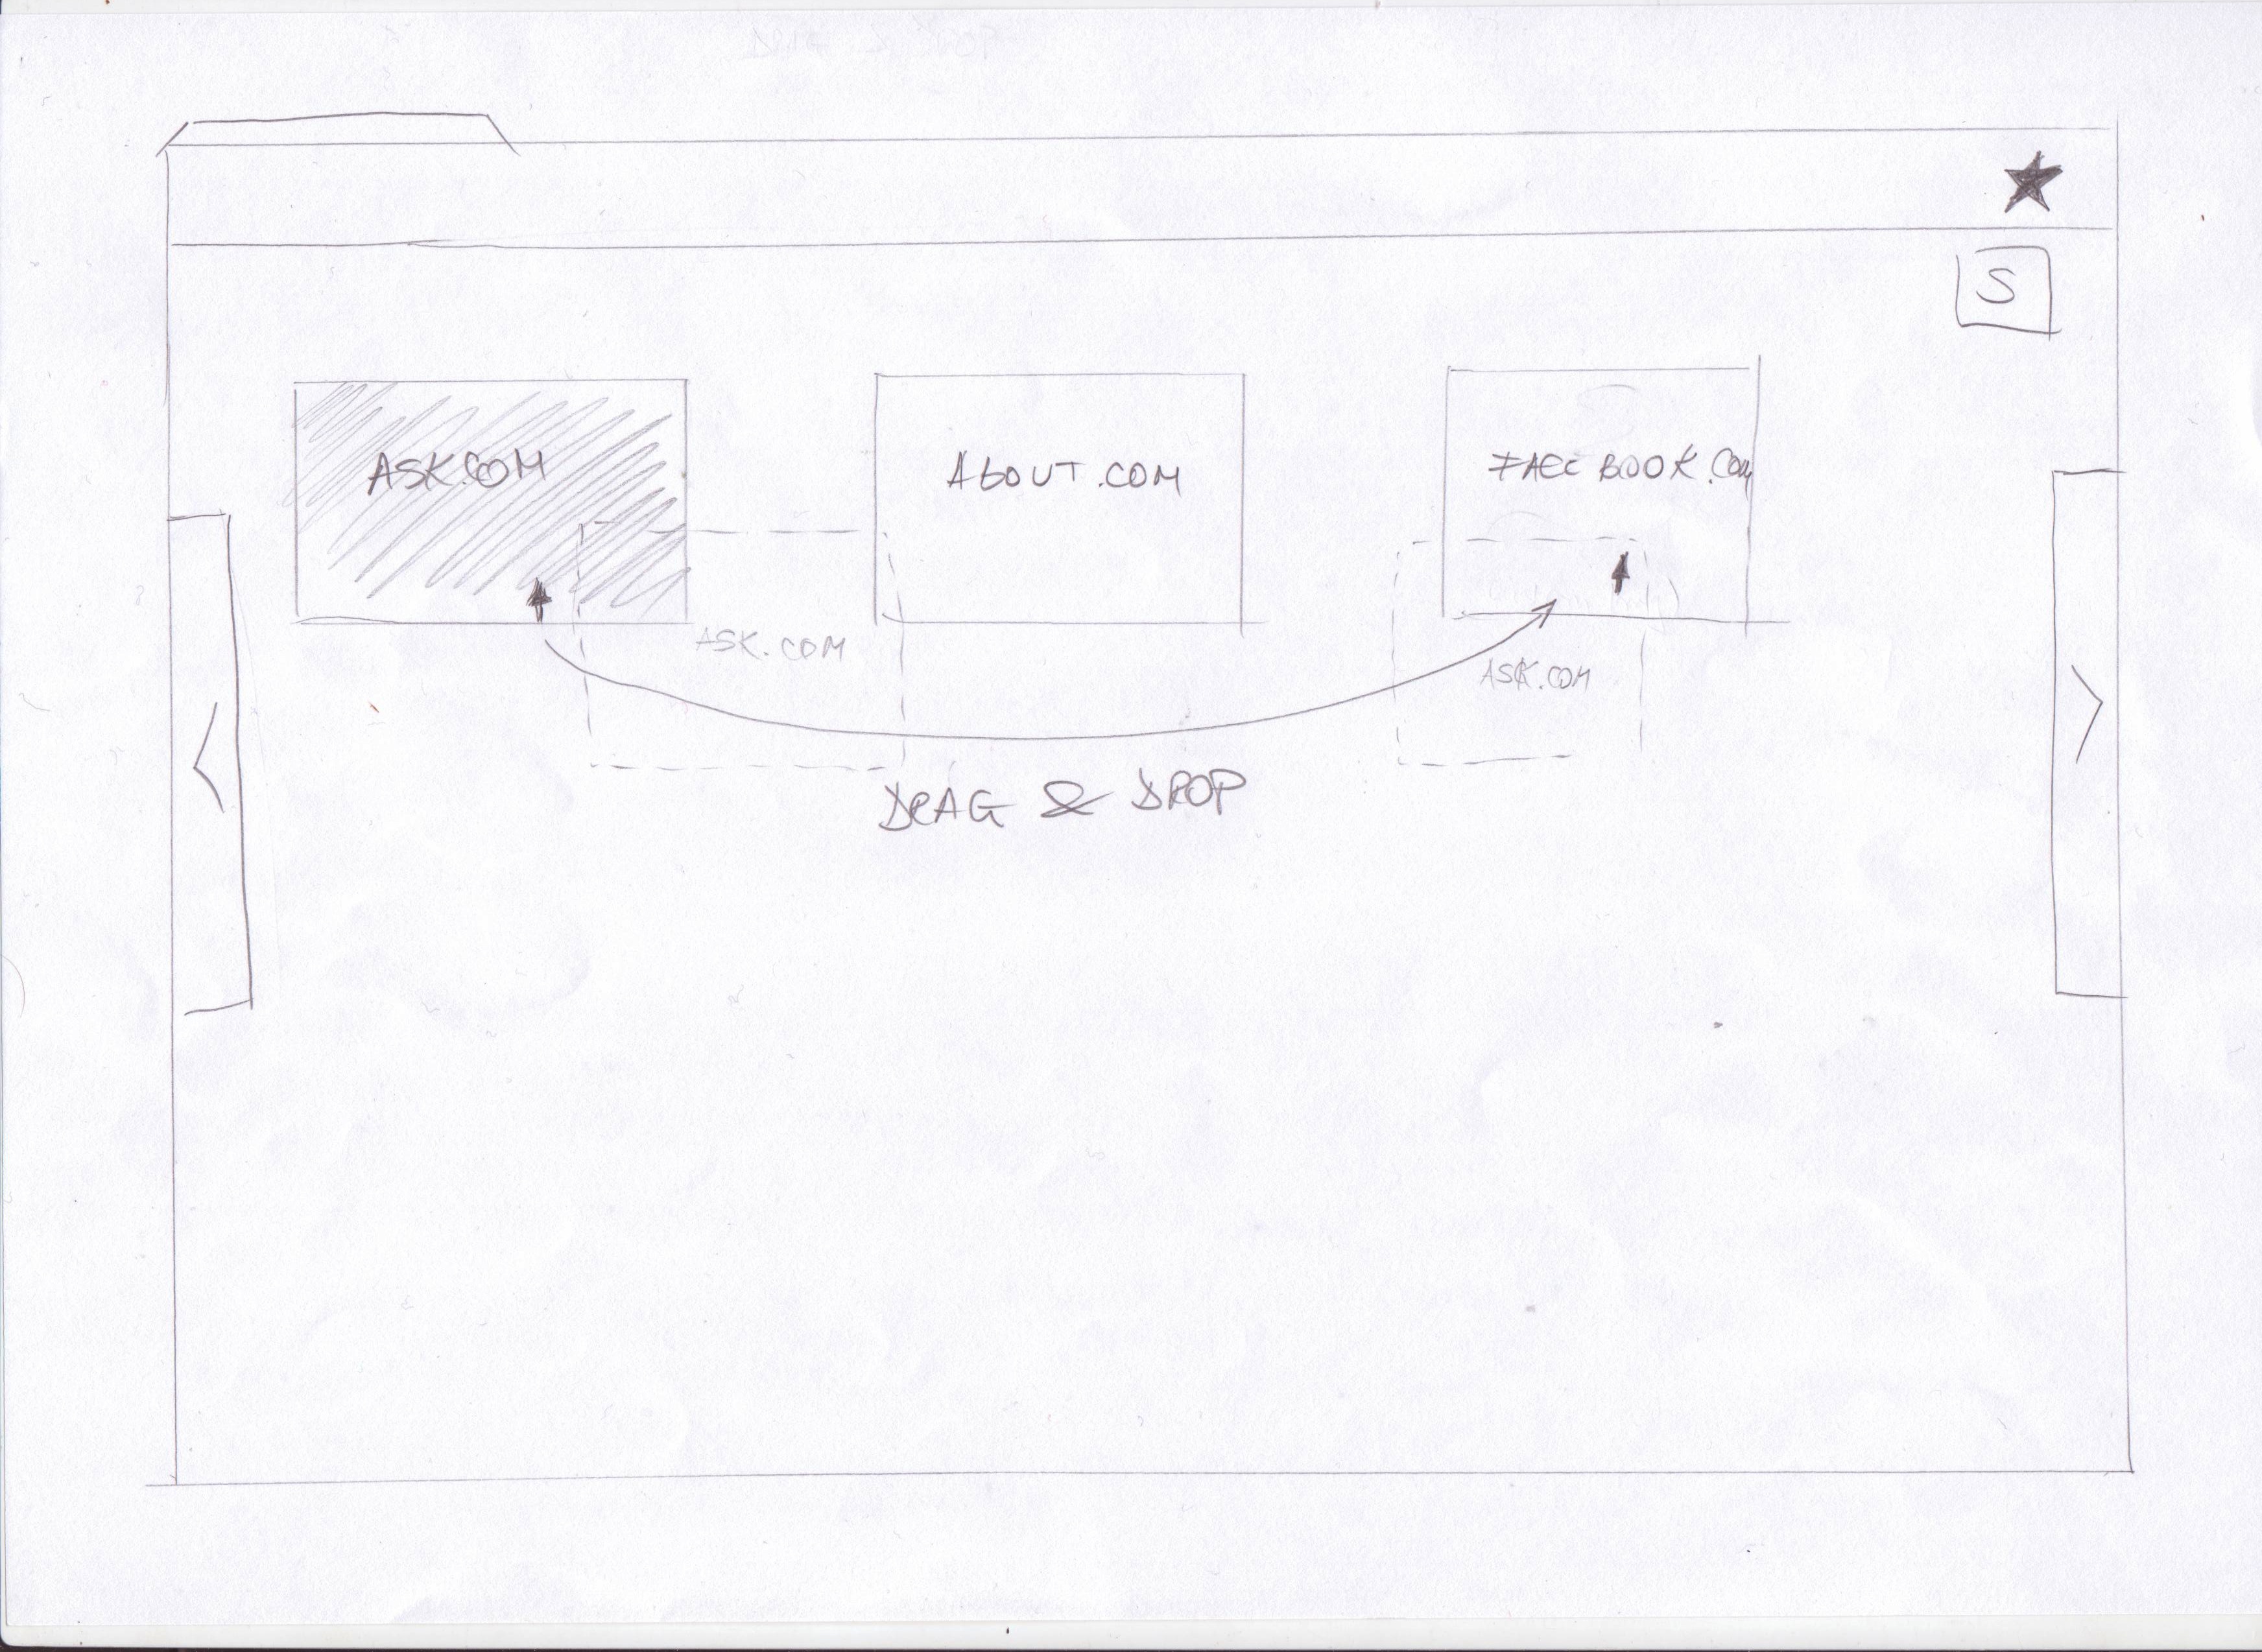 S
ASK.COM
ABOUT.COM
FAECBOOK.COM
ASK.COM
ASK.COM
DRAG & DROP